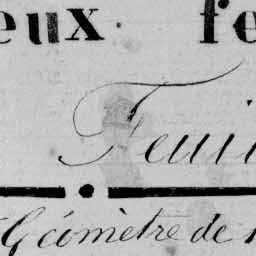 eux. fe
Feui
Géomètre de